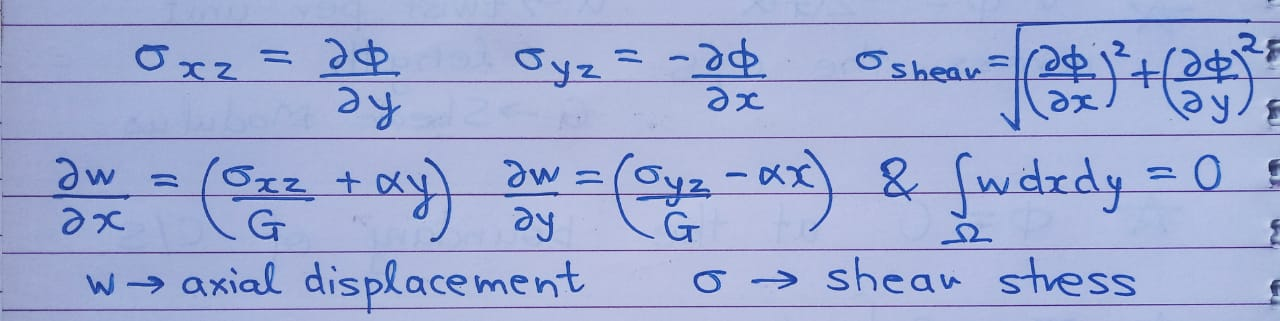 σxz = ∂Φ/∂y σyz = -∂Φ/∂x σshear = √((∂Φ/∂x)² + (∂Φ/∂y)²)
∂w/∂x = (σxz/G + αy) ∂w/∂y = (σyz/G - αx) & ∫Ω w dx dy = 0
w → axial displacement σ → shear stress